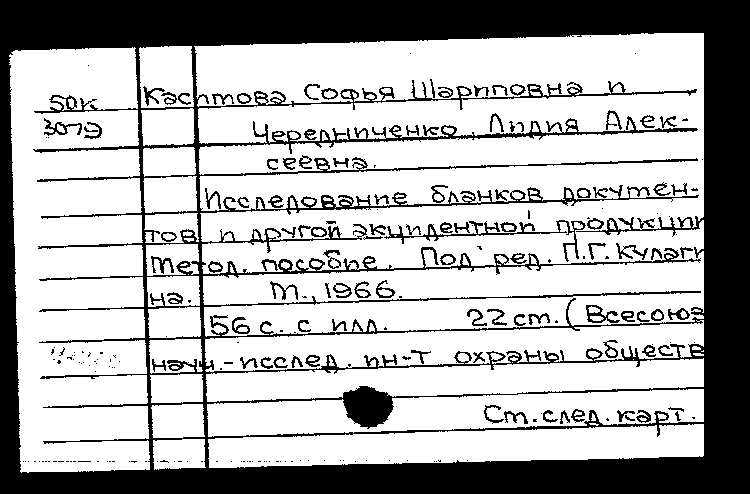 50к Касимова, Софья Шариповна и
3079 Чередниченко, Лидия Алек-
сеевна.
Исследование бланков докумен-
тов и другой акцидентной продукции
Метод. пособие. Под ред. П.Г. Кулаги
на. М., 1966.
56 с. с илл. 22 см. (Всесоюз
научн.-исслед. ин-т охраны обществ
Ст. след. карт.